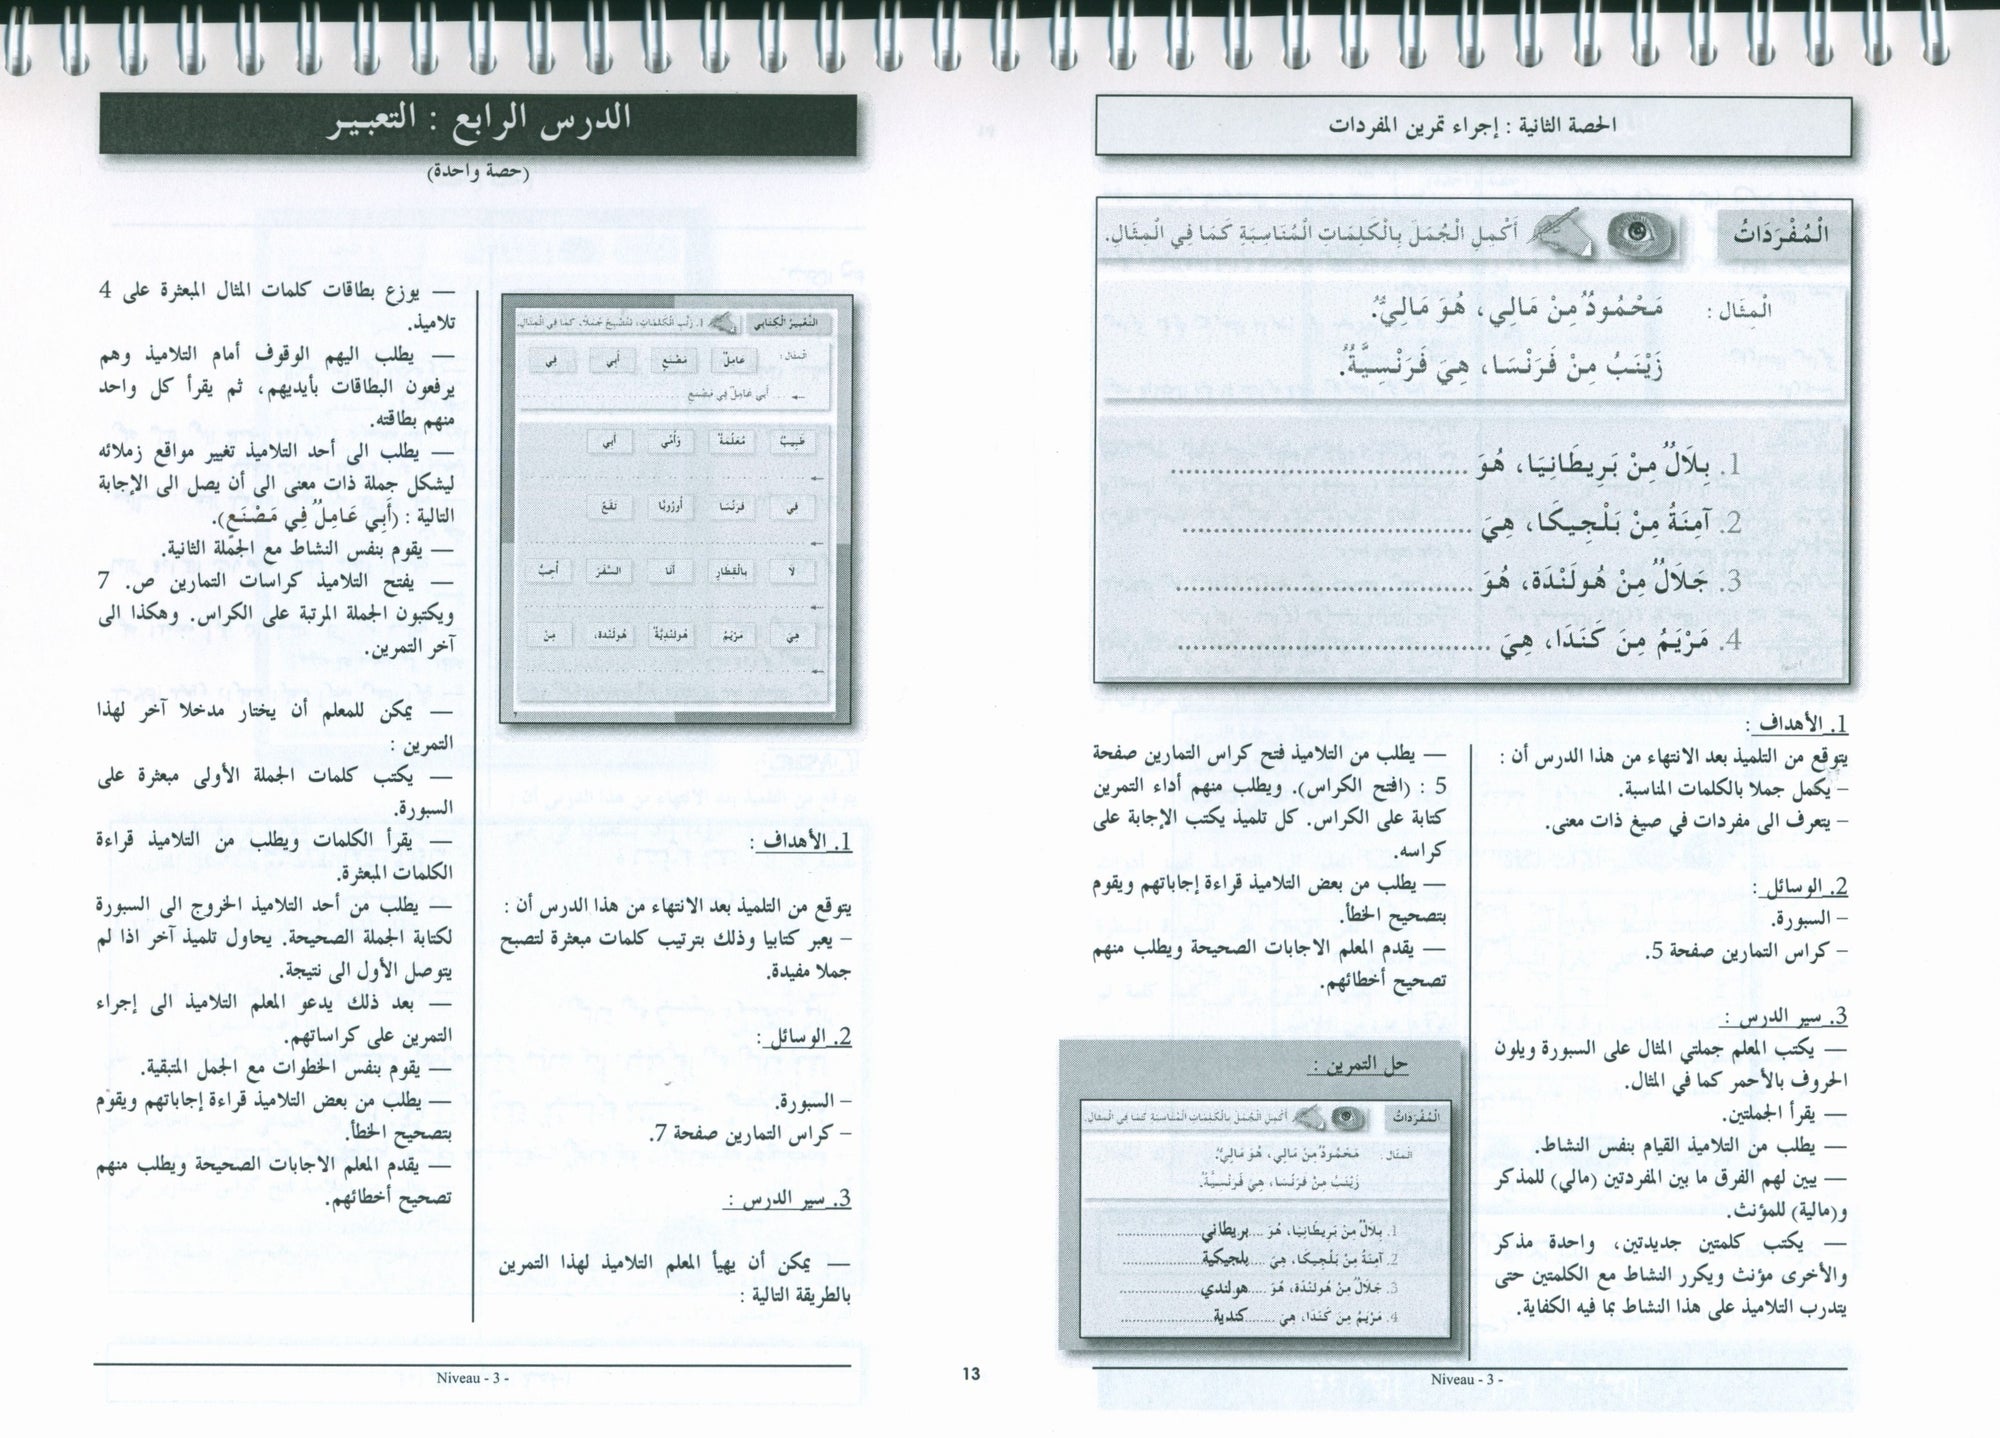 الحصة الثانية : إجراء تمرين المفردات
الْمُفْرَدَاتُ
أَكْمِلِ الْجُمَلَ بِالْكَلِمَاتِ الْمُنَاسِبَةِ كَمَا فِي الْمِثَالِ.
الْمِثَال : مَحْمُودٌ مِنْ مَالِي، هُوَ مَالِيٌّ.
زَيْنَبُ مِنْ فَرَنْسَا، هِيَ فَرَنْسِيَّةٌ.
1. بِلَالٌ مِنْ بَرِيطَانِيَا، هُوَ ................................
2. آمِنَةُ مِنْ بَلْجِيكَا، هِيَ ................................
3. جَلَالٌ مِنْ هُولَنْدَة، هُوَ ................................
4. مَرْيَمُ مِنَ كَنَدَا، هِيَ ................................
1. الأهداف :
يتوقع من التلميذ بعد الانتهاء من هذا الدرس أن :
– يكمل جملا بالكلمات المناسبة.
– يتعرف الى مفردات في صيغ ذات معنى.
2. الوسائل :
– السبورة.
– كراس التمارين صفحة 5.
3. سير الدرس :
— يكتب المعلم جملتي المثال على السبورة ويلون
الحروف بالأحمر كما في المثال.
— يقرأ الجملتين.
— يطلب من التلاميذ القيام بنفس النشاط.
— يبين لهم الفرق ما بين المفردتين (مالي) للمذكر
و(مالية) للمؤنث.
— يكتب كلمتين جديدتين، واحدة مذكر
والأخرى مؤنث ويكرر النشاط مع الكلمتين حتى
يتدرب التلاميذ على هذا النشاط بما فيه الكفاية.
— يطلب من التلاميذ فتح كراس التمارين صفحة
5 : (افتح الكراس). ويطلب منهم أداء التمرين
كتابة على الكراس. كل تلميذ يكتب الإجابة على
كراسه.
— يطلب من بعض التلاميذ قراءة إجاباتهم ويقوم
بتصحيح الخطأ.
— يقدم المعلم الاجابات الصحيحة ويطلب منهم
تصحيح أخطائهم.
حل التمرين :
الْمُفْرَدَاتُ
أَكْمِلِ الْجُمَلَ بِالْكَلِمَاتِ الْمُنَاسِبَةِ كَمَا فِي الْمِثَالِ.
الْمِثَال : مَحْمُودٌ مِنْ مَالِي، هُوَ مَالِيٌّ.
زَيْنَبُ مِنْ فَرَنْسَا، هِيَ فَرَنْسِيَّةٌ.
1. بِلَالٌ مِنْ بَرِيطَانِيَا، هُوَ .... بريطاني ................
2. آمِنَةُ مِنْ بَلْجِيكَا، هِيَ .... بلجيكية ................
3. جَلَالٌ مِنْ هُولَنْدَة، هُوَ .... هولندي ................
4. مَرْيَمُ مِنَ كَنَدَا، هِيَ ....... كندية ................
Niveau - 3 -
13
الدرس الرابع : التعبير
(حصة واحدة)
التَّعْبِيرُ الْكِتَابِي
1. رَتِّبِ الْكَلِمَاتِ، لِتُصْبِحَ جُمَلاً، كَمَا فِي الْمِثَالِ.
الْمِثَال : عَامِلٌ مَصْنَعٍ أَبِي فِي
← أَبِي عَامِلٌ فِي مَصْنَعٍ
طَبِيبٌ مُعَلِّمَةٌ وَأُمِّي أَبِي
فِي فَرَنْسَا أُورُوبَّا تَقَعُ
لَا بِالْقِطَارِ أَنَا السَّفَرَ أُحِبُّ
هِيَ مَرْيَمُ هُولَنْدِيَّةٌ هُولَنْدَة، مِنْ
7
1. الأهداف :
يتوقع من التلميذ بعد الانتهاء من هذا الدرس أن :
– يعبر كتابيا وذلك بترتيب كلمات مبعثرة لتصبح
جملا مفيدة.
2. الوسائل :
– السبورة.
– كراس التمارين صفحة 7.
3. سير الدرس :
— يمكن أن يهيأ المعلم التلاميذ لهذا التمرين
بالطريقة التالية :
— يوزع بطاقات كلمات المثال المبعثرة على 4
تلاميذ.
— يطلب اليهم الوقوف أمام التلاميذ وهم
يرفعون البطاقات بأيديهم، ثم يقرأ كل واحد
منهم بطاقته.
— يطلب الى أحد التلاميذ تغيير مواقع زملائه
ليشكل جملة ذات معنى الى أن يصل الى الإجابة
التالية : (أَبِي عَامِلٌ فِي مَصْنَعٍ).
— يقوم بنفس النشاط مع الجملة الثانية.
— يفتح التلاميذ كراسات التمارين ص. 7
ويكتبون الجملة المرتبة على الكراس. وهكذا الى
آخر التمرين.
— يمكن للمعلم أن يختار مدخلا آخر لهذا
التمرين :
— يكتب كلمات الجملة الأولى مبعثرة على
السبورة.
— يقرأ الكلمات ويطلب من التلاميذ قراءة
الكلمات المبعثرة.
— يطلب من أحد التلاميذ الخروج الى السبورة
لكتابة الجملة الصحيحة. يحاول تلميذ آخر اذا لم
يتوصل الأول الى نتيجة.
— بعد ذلك يدعو المعلم التلاميذ الى إجراء
التمرين على كراساتهم.
— يقوم بنفس الخطوات مع الجمل المتبقية.
— يطلب من بعض التلاميذ قراءة إجاباتهم ويقوم
بتصحيح الخطأ.
— يقدم المعلم الاجابات الصحيحة ويطلب منهم
تصحيح أخطائهم.
Niveau - 3 -